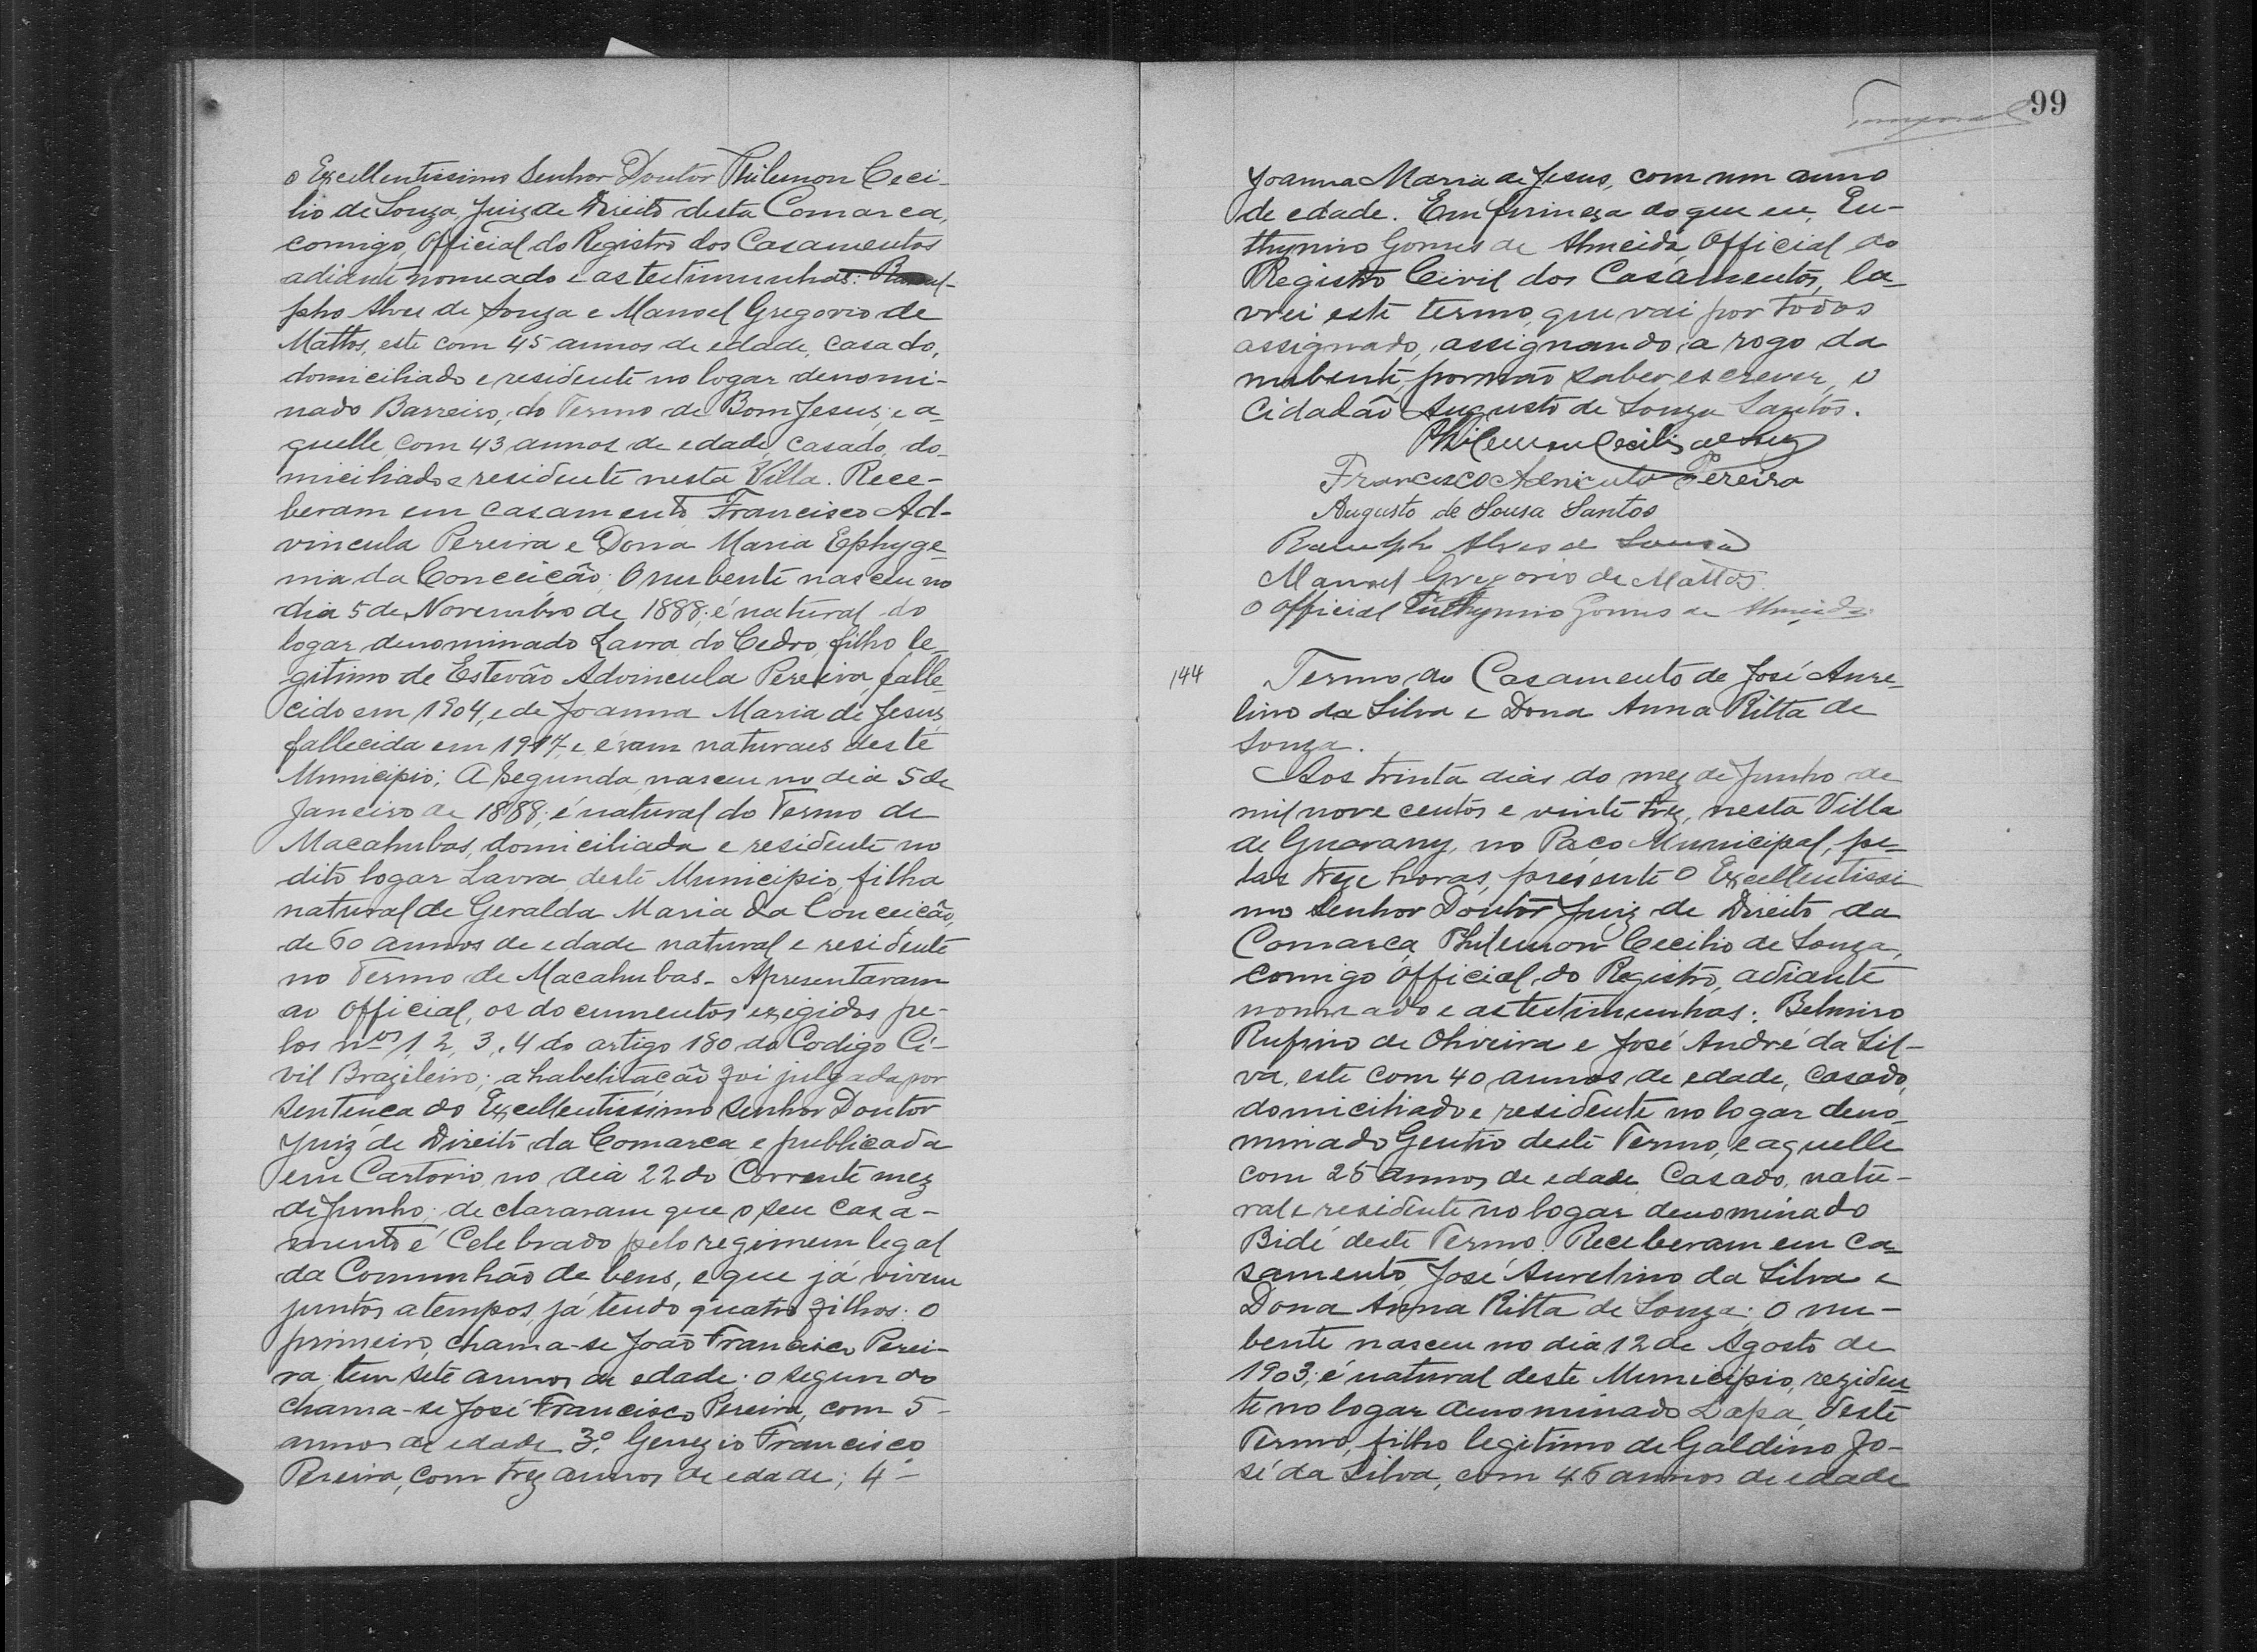 o Excellentissimo Senhor Doutor Philemon Ceci-
lio de Souza, Juiz de Direito desta Comarca,
comigo, Official do Registro dos Casamentos
adiante nomeado e as testimunhas: Ranul-
pho Alves de Souza e Manoel Gregorio de
Mattos, este com 45 annos de edade, casado,
domiciliado e residente no logar denomi-
nado Barreiro, do Termo de Bom Jesus; e a-
quelle com 43 annos de edade, casado, do-
miciliado e residente nesta Villa. Rece-
beram em casamento Francisco Ad-
vincula Pereira e Dona Maria Ephyge-
nia da Conceição; O nubente nasceu no
dia 5 de Novembro de 1888; é natural do
logar denominado Lavra do Cedro, filho le-
gitimo de Estevão Advincula Pereira, falle-
cido em 1904, e de Joanna Maria de Jesus,
fallecida em 1917, e éram naturaes deste
Municipio; A Segunda, nasceu no dia 5 de
Janeiro de 1888; é natural do Termo de
Macahubas, domiciliada e residente no
dito logar Lavra, deste Municipio, filha
natural de Geralda Maria da Conceição,
de 60 annos de edade natural e residente
no Termo de Macahubas. Apresentaram
ao Official, os documentos exigidos pe-
los nos 1, 2, 3, 4 do artigo 180 do Codigo Ci-
vil Brazileiro; a habelitação foi julgada por
sentença do Excellentissimo Senhor Doutor
Juiz de Direito da Comarca e publicada
em Cartorio, no dia 22 do Corrente mez
de Junho; declararam que o seu casa-
mento é Celebrado pelo regimem legal
da Comunhão de bens, e que já vivem
juntos a tempos, já tendo quatro filhos: O
primeiro, chama-se João Francisco Perei-
ra, tem sete annos de edade; o segundo
chama-se José Francisco Pereira, com 5
annos de edade 3º Genezio Francisco
Pereira, com trez annos de edade; 4º
99
Joanna Maria de Jesus, com um anno
de edade. Em firmeza do que eu, Eu-
thymio Gomes de Almeida, Official do
Registro Civil dos Casamentos, la-
vrei este termo, que vai por todos
assignado, assignando, a rogo da
nubente, por não saber escrever, o
Cidadão Augusto de Souza Santos.
Philemon Cecilio de Souza
Francisco Advincula Pereira
Augusto de Sousa Santos
Ranulpho Alves de Souza
Manoel Gregorio de Mattos
O Official Euthymio Gomes de Almeida
144 Termo do Casamento de José Aure-
lino da Silva e Dona Anna Ritta de
Souza.
Aos trinta dias do mez de Junho de
mil nove centos e vinte trez, nesta Villa
de Guarany, no Paço Municipal, pe-
las treze horas, presente O Excellentissi-
mo Senhor Doutor Juiz de Direito da
Comarca, Philemon Cecilio de Souza,
comigo Official do Registro, adiante
nomeado e as testimunhas: Belmiro
Rufino de Oliveira e José André da Sil-
va, este com 40 annos de edade, Casado,
domiciliado e residente no logar deno-
minado Gentio deste Termo, e aquelle
com 25 annos de edade, Casado, natu-
ral e residente no logar denominado
Bidé deste Termo. Receberam em Ca-
samento, José Aurelino da Silva e
Dona Anna Ritta de Souza: O nu-
bente nasceu no dia 12 de Agosto de
1903; é natural deste Municipio, reziden-
te no logar denominado Lapa, deste
Termo, filho legitimo de Galdino Jo-
sé da Silva, com 46 annos de edade